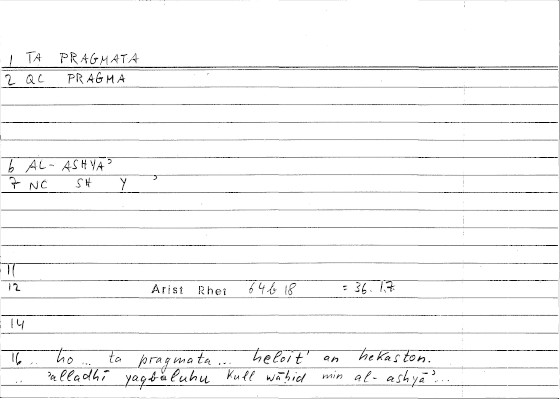 1 TA PRAGMATA
2 QC PRAGMA
6 AL-ASHYAʾ
7 NC SH Y ʾ
11
12 Arist Rhet 64b18 = 36.17
14
16 .. ho ... ta pragmata ... heloit' an hekaston.
.. ʾalladhī yaqbaluhu kull wāḥid min al-ashyāʾ ...